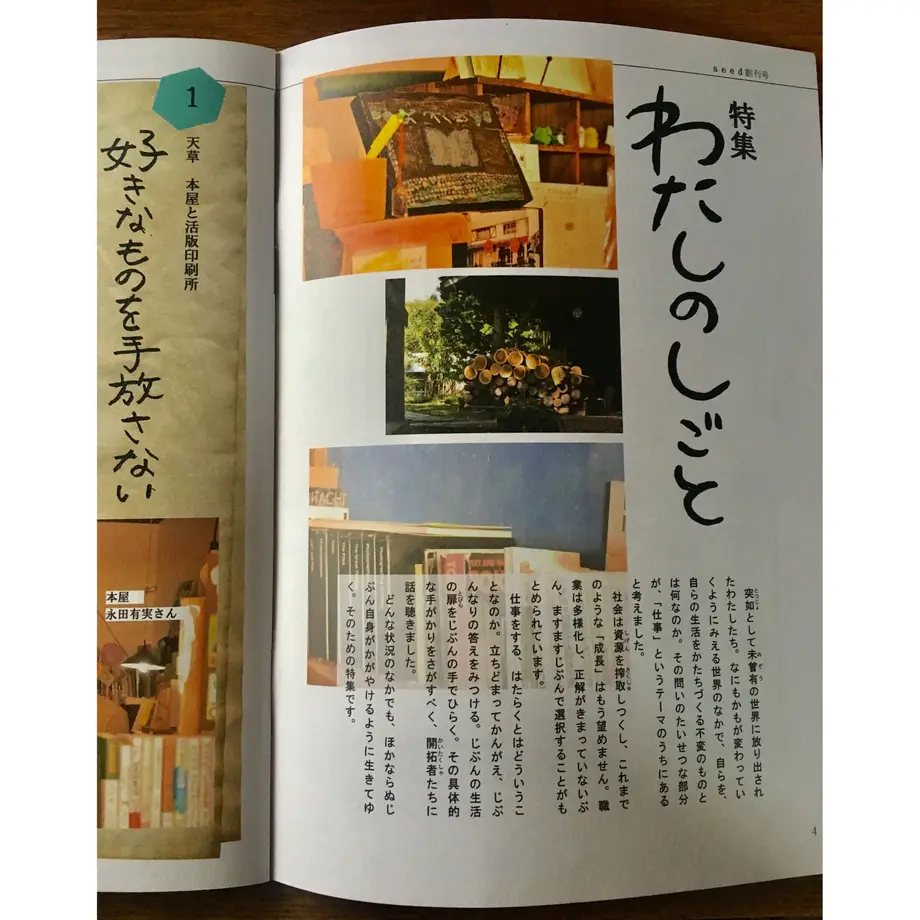 seed創刊号
特集
わたしのしごと
突如として未曾有の世界に放り出され
たわたしたち。なにもかもが変わってい
くようにみえる世界のなかで、自らを、
自らの生活をかたちづくる不変のものと
は何なのか。その問いのたいせつな部分
が、「仕事」というテーマのうちにある
と考えました。
社会は資源を搾取しつくし、これまで
のような「成長」はもう望めません。職
業は多様化し、正解がきまっていないぶ
ん、ますますじぶんで選択することがも
とめられています。
仕事をする、はたらくとはどういうこ
となのか。立ちどまってかんがえ、じぶ
んなりの答えをみつける。じぶんの生活
の扉をじぶんの手でひらく。その具体的
な手がかりをさがすべく、開拓者たちに
話を聴きました。
どんな状況のなかでも、ほかならぬじ
ぶん自身がかがやけるように生きてゆ
く。そのための特集です。
4
1
天草 本屋と活版印刷所
好きなものを手放さない
本屋
永田有実さん